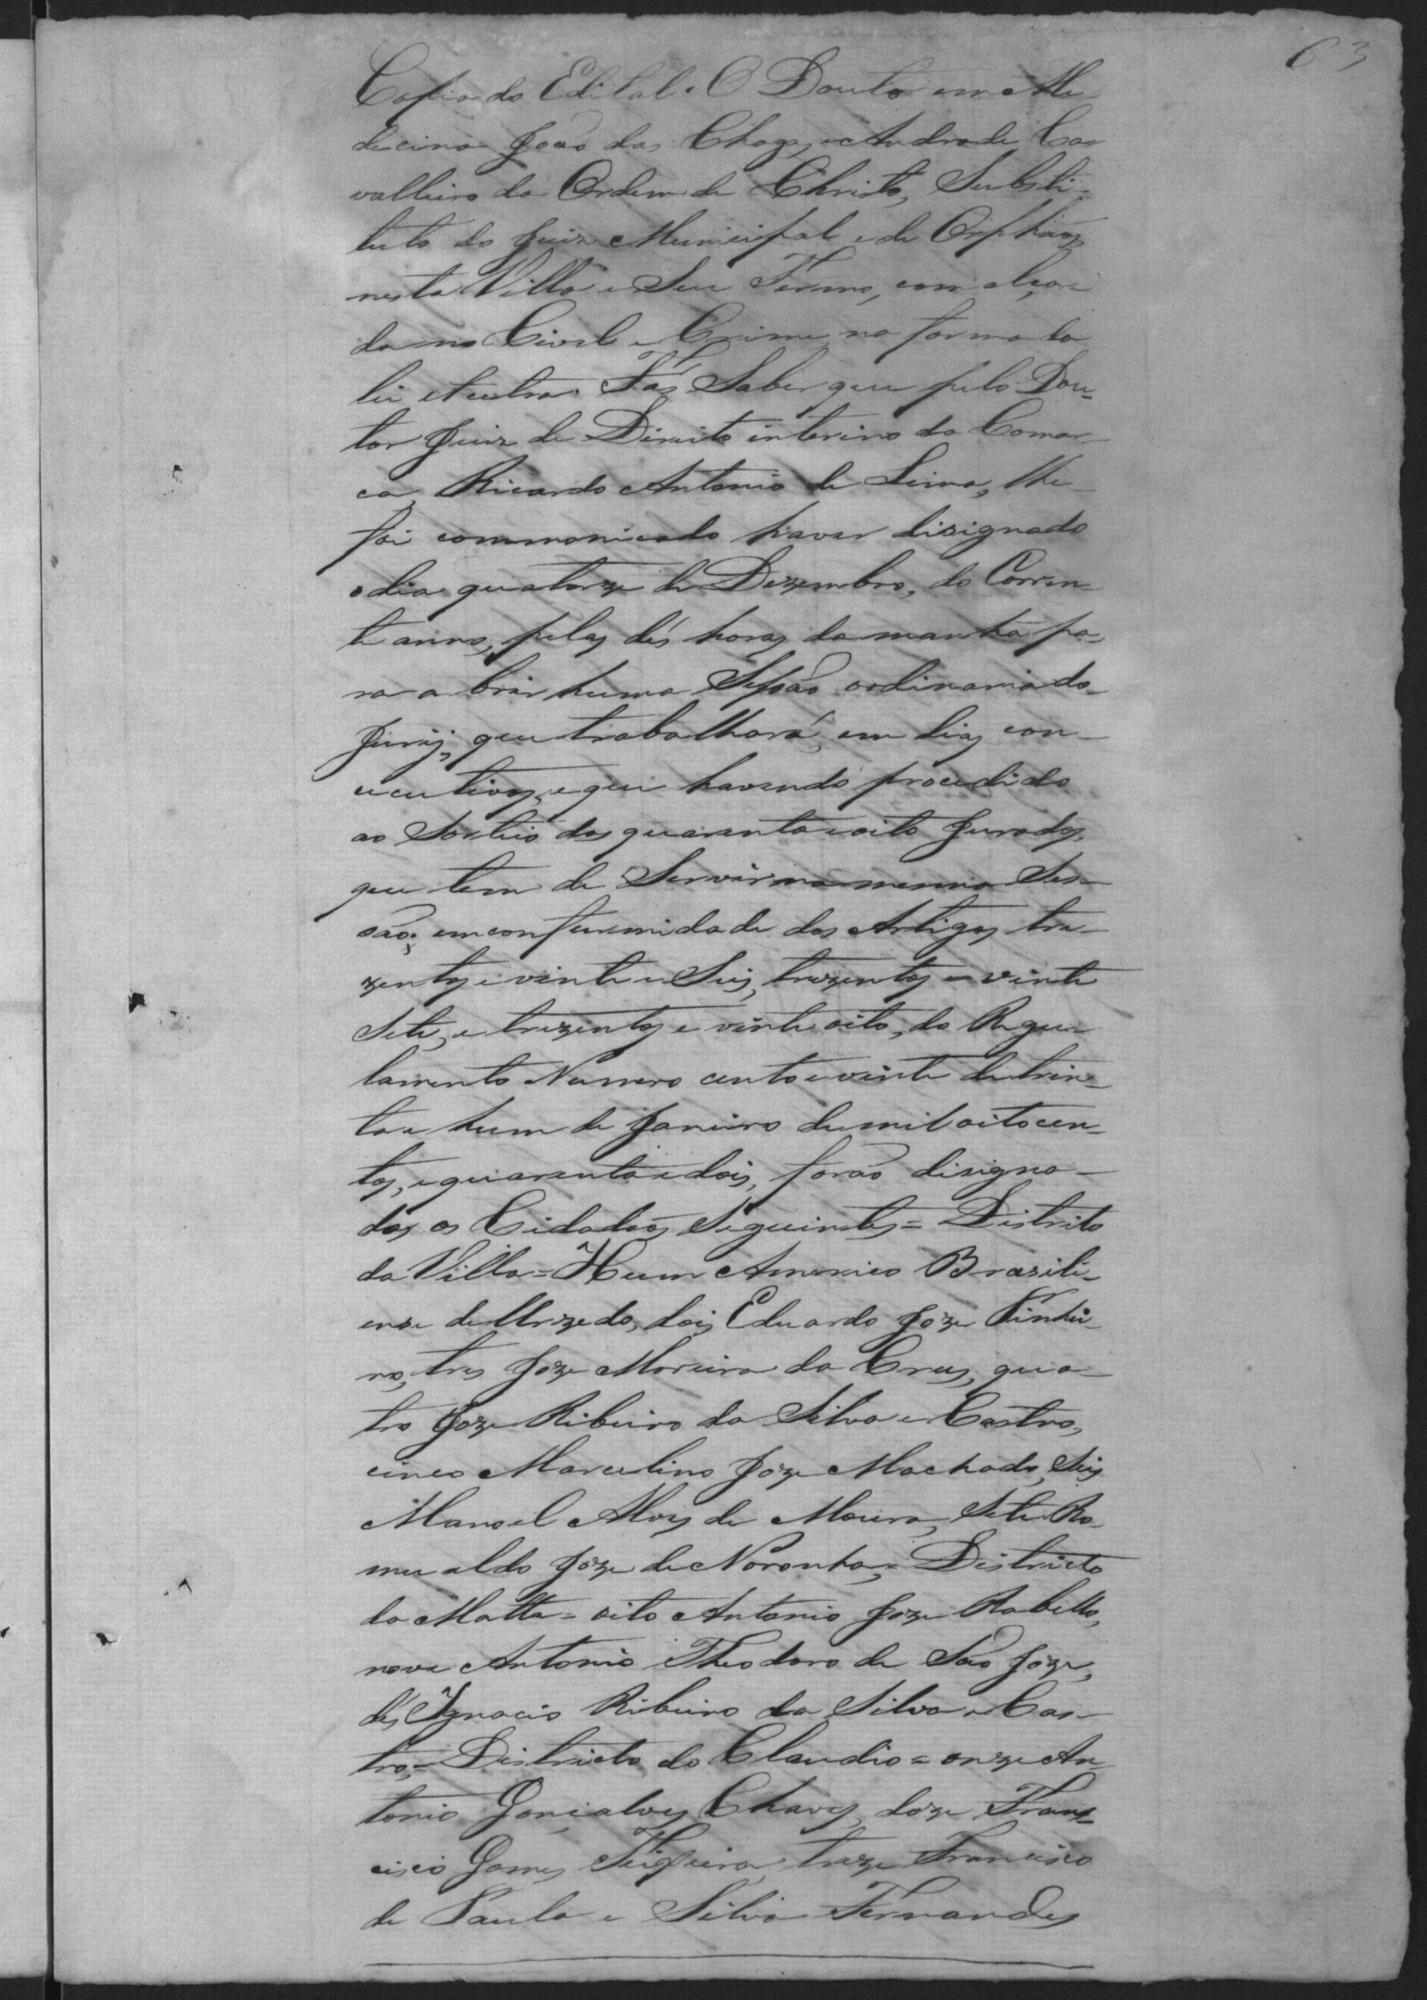 63
Copia do Edital. O Doutor em Me
decina João das Chagas e Andrade Ca
valleiro da Ordem de Christo, Substi-
tuto do Juiz Municipal e de Orphãos
nesta Villa e Seu Termo, com alça
da no Civel e Crime na forma da
lei etcetra. Fás Saber que pelo Dou-
tor Juiz de Direito interino da Comar-
ca, Ricardo Antonio de Lima, lhe
foi communicado haver disignado
o dia quatorze de Dezembro, do Corren-
te anno, pelas dés horas da manhã pa-
ra abrir huma Sessão ordinaria do
Jurÿ, que trabalhará em dias con-
cecutivos, e que havendo procedido
ao Sorteio dos quarenta e oito Jurados,
que tem de Servir na mesma Ses-
são; em confurmidade dos Artigos tre-
zentos e vinte e Seis, trezentos e vinte
Sete, e trezentos e vinte oito, do Regu
lamento Numero cento e vinte de trin-
ta e hum de Janeiro de mil oitocen-
tos, e quarenta e dois, forão disigna-
dos os Cidadãos Seguintes = Distrito
da Villa = Hum Americo Brazili-
ense de Urzedo, dois Eduardo Joze Pinhei-
ro, tres Joze Moreira da Crus, qua-
tro Joze Ribeiro da Silva e Castro,
cinco Marcelino Joze Machado, Seis
Manoel Alves de Moura, Sete Ro-
mualdo Joze de Noronha, = Districto
da Matta = oito Antonio Joze Rabello,
nove Antonio Theodoro de São Joze,
dés Ignacio Ribeiro da Silva e Cas-
tro, = Districto do Claudio = onze An
tonio Gonçalves Chaves, doze Fran-
cisco Gomes Teixeira, treze Francisco
de Paula e Silva Fernandes